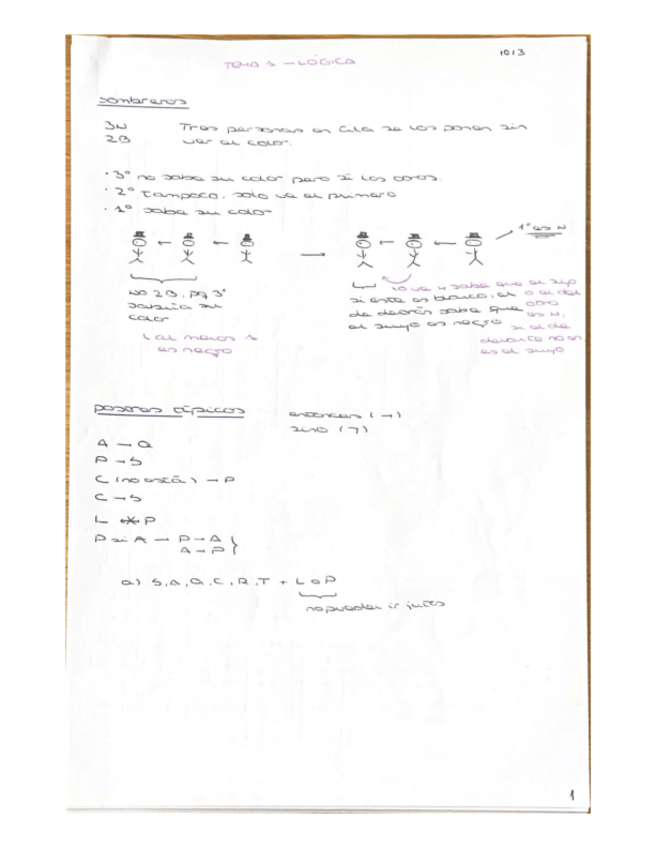 10/3
TEMA 1 - LÓGICA
sombreros
3N Tres personas en fila se los ponen sin
2B ver el color.
· 3º no sabe su color pero si los otros.
· 2º tampoco, solo ve al primero
· 1º sabe su color
1º es N
NO 2B, pq 3º
sabría su
color
al menos 1
es negro
lo ve y sabe que el suyo
si este es blanco, el
o el del
de detrás sabe que
otro
el suyo es negro
es N,
si el de
delante no es,
es el suyo
posores típicos
entonces (→)
sino (¬)
A → Q
P → S
C (no está) → P
C → S
L P
P si A → P → A
A → P
a) S, A, Q, C, R, T + L o P
no pueden ir juntos
1